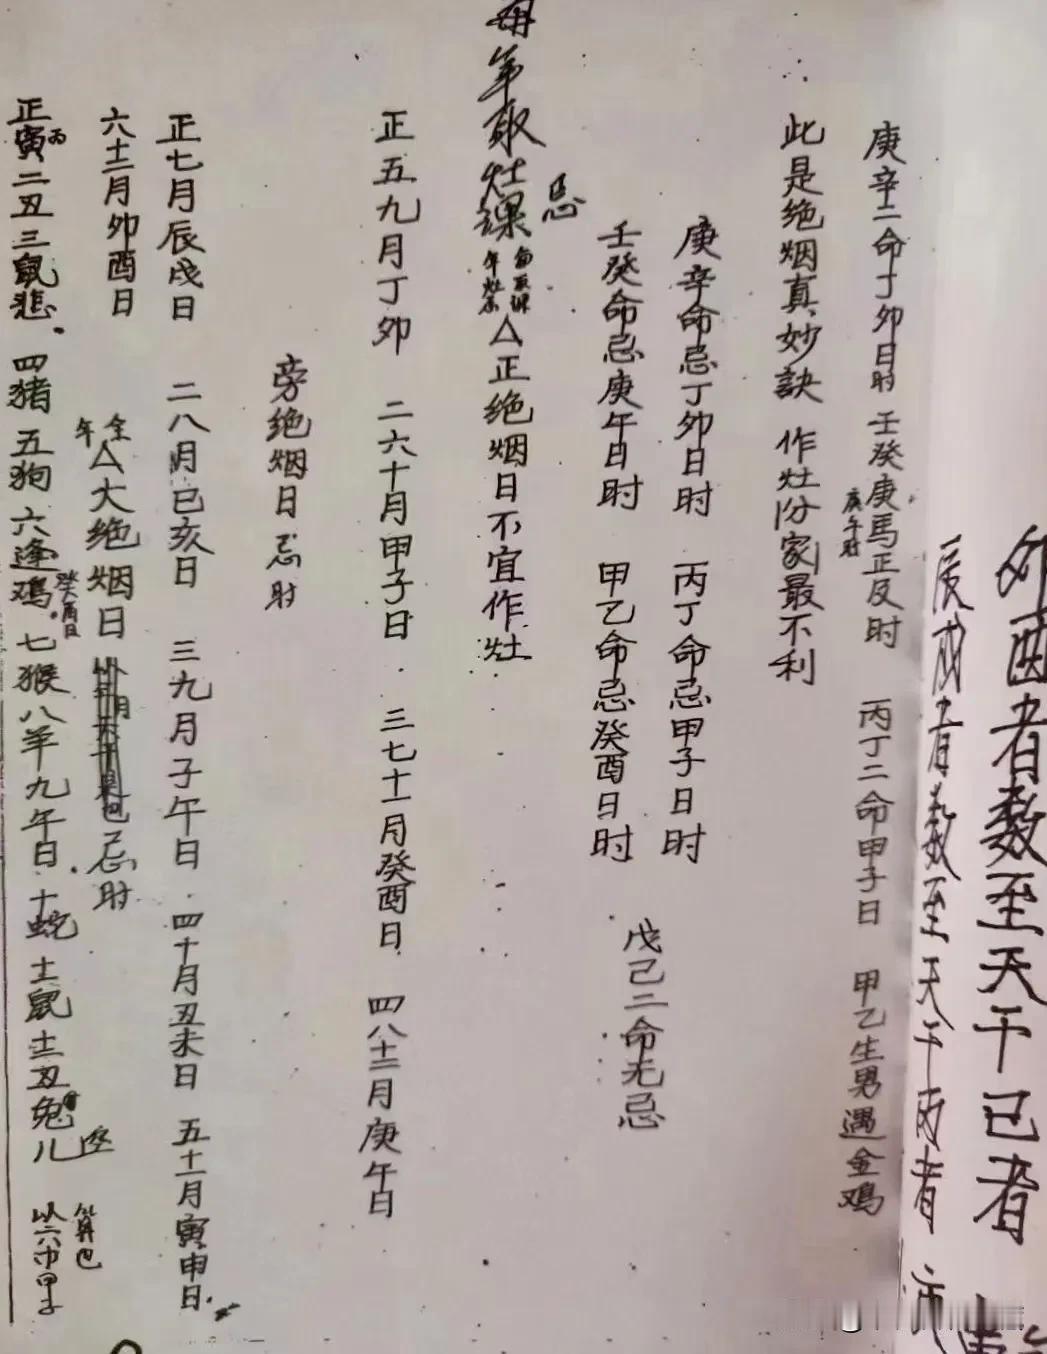 卯酉者数至天干己者
辰戍者数至天干丙者
庚辛二命丁卯日时 壬癸庚馬正反时 丙丁二命甲子日 甲乙生男遇金鸡
庚午时
此是绝烟真妙訣 作灶分家最不利
庚辛命忌丁卯日时 丙丁命忌甲子日时
壬癸命忌庚午日时 甲乙命忌癸酉日时
戊己二命无忌
忌
每年取灶課 △正绝烟日不宜作灶
正五九月丁卯 二六十月甲子日 三七十一月癸酉日 四八十二月庚午日
旁绝烟日忌时
正七月辰戍日 二八月巳亥日 三九月子午日 四十月丑未日 五十一月寅申日
六十二月卯酉日
全年△大绝烟日 忌时
正寅二丑三鼠悲 四猪五狗六逢鸡 七猴八羊九午日 十蛇十一鼠十二丑兔儿
丙
癸酉日
以六十甲子
算也